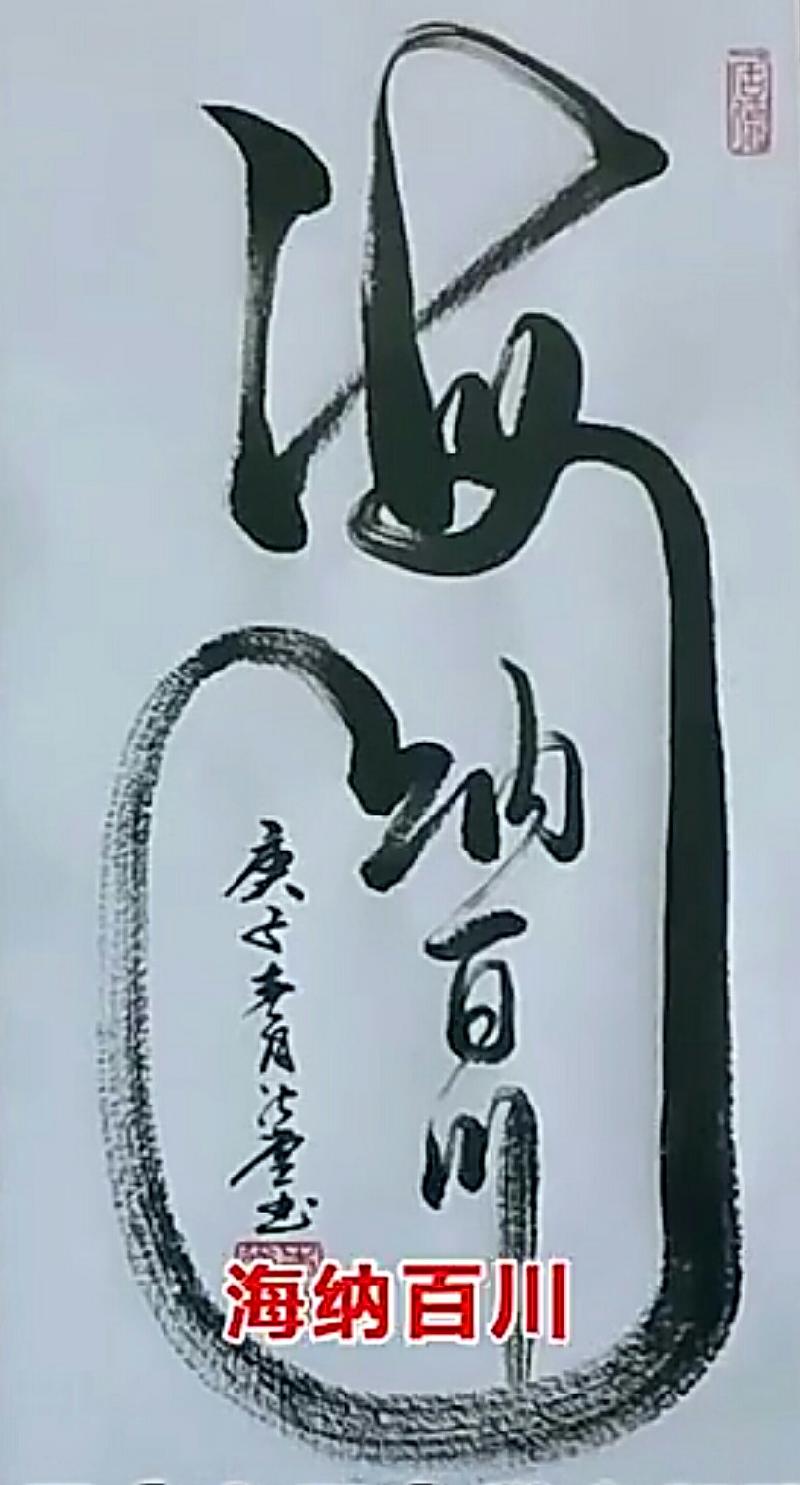 海纳百川
庚子春月
书
海纳百川